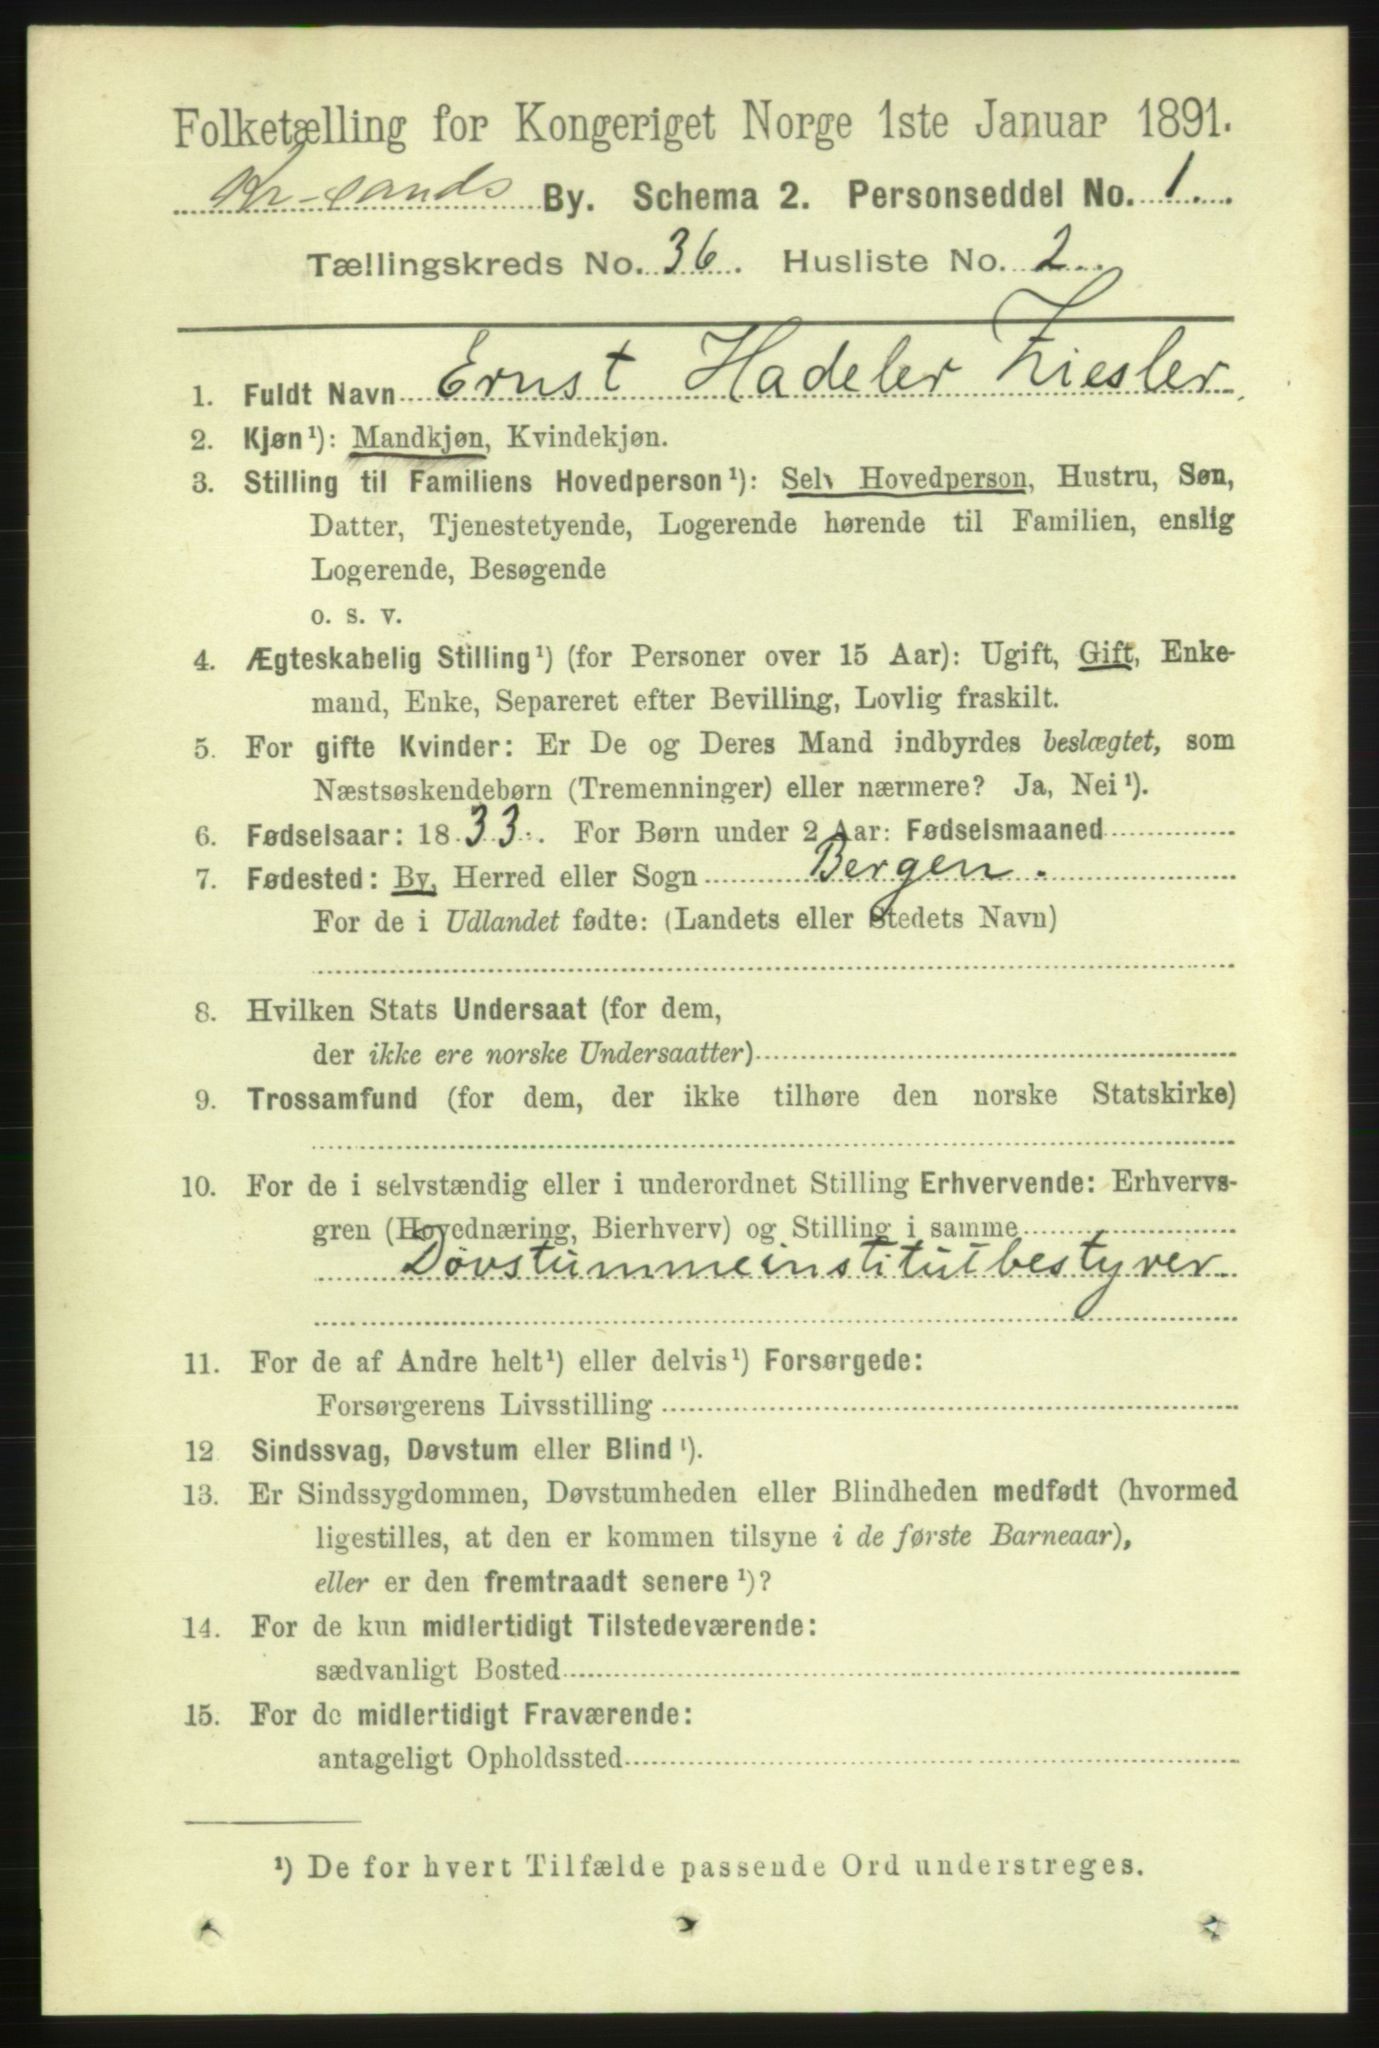 Folketælling for Kongeriget Norge 1ste Januar 1891.
Kr-sands By. Schema 2. Personseddel No. 1.
Tællingskreds No. 36. Husliste No. 2.
1. Fuldt Navn Ernst Hadeler Ziesler.
2. Kjøn¹): Mandkjøn, Kvindekjøn.
3. Stilling til Familiens Hovedperson¹): Selv Hovedperson, Hustru, Søn,
Datter, Tjenestetyende, Logerende hørende til Familien, enslig
Logerende, Besøgende
o. s. v.
4. Ægteskabelig Stilling¹) (for Personer over 15 Aar): Ugift, Gift, Enke-
mand, Enke, Separeret efter Bevilling, Lovlig fraskilt.
5. For gifte Kvinder: Er De og Deres Mand indbyrdes beslægtet, som
Næstsøskendebørn (Tremenninger) eller nærmere? Ja, Nei¹).
6. Fødselsaar: 1833. For Børn under 2 Aar: Fødselsmaaned
7. Fødested: By, Herred eller Sogn Bergen.
For de i Udlandet fødte: (Landets eller Stedets Navn)
8. Hvilken Stats Undersaat (for dem,
der ikke ere norske Undersaatter)
9. Trossamfund (for dem, der ikke tilhøre den norske Statskirke)
10. For de i selvstændig eller i underordnet Stilling Erhvervende: Erhvervs-
gren (Hovednæring, Bierhverv) og Stilling i samme
Døvstummeinstitutbestyrer
11. For de af Andre helt¹) eller delvis¹) Forsørgede:
Forsørgerens Livsstilling
12 Sindssvag, Døvstum eller Blind¹).
13. Er Sindssygdommen, Døvstumheden eller Blindheden medfødt (hvormed
ligestilles, at den er kommen tilsyne i de første Barneaar),
eller er den fremtraadt senere¹)?
14. For de kun midlertidigt Tilstedeværende:
sædvanligt Bosted
15. For de midlertidigt Fraværende:
antageligt Opholdssted
¹) De for hvert Tilfælde passende Ord understreges.